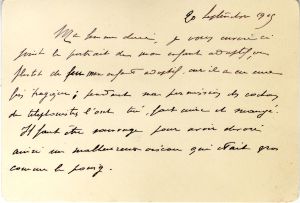 20 Septembre 1915
Ma bonne chérie, je vous envoie ci
joint le portrait de mon enfant adoptif, ou
plutôt de feu mon enfant adoptif, car il a eu une
fin tragique; pendant ma permission des cochons
de téléphonistes l'ont tué, fait cuire et mangé.
Il faut être sauvage pour avoir dévoré
ainsi un malheureux oiseau qui était gros
comme le poing.